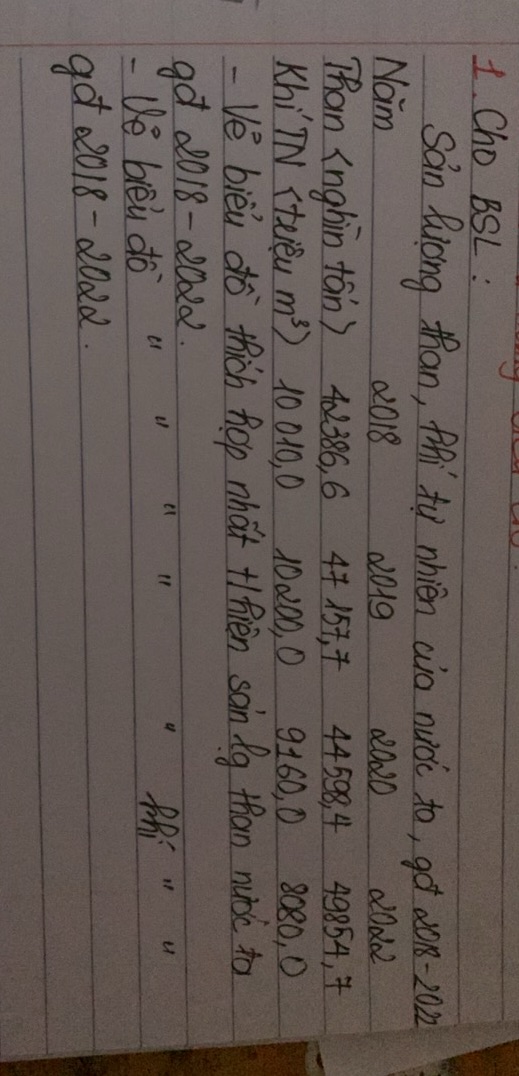 1. Cho BSL:
Sản lượng than, khí tự nhiên của nước ta, gđ 2018-2022
Năm 2018 2019 2020 2022
Than (nghìn tấn) 42386,6 47157,7 44598,4 49854,7
Khí TN (triệu m³) 10010,0 10200,0 9160,0 8080,0
- Vẽ biểu đồ thích hợp nhất t/hiện sản lg than nước ta
gđ 2018-2022.
- Vẽ biểu đồ " " " " " khí " "
gđ 2018-2022.